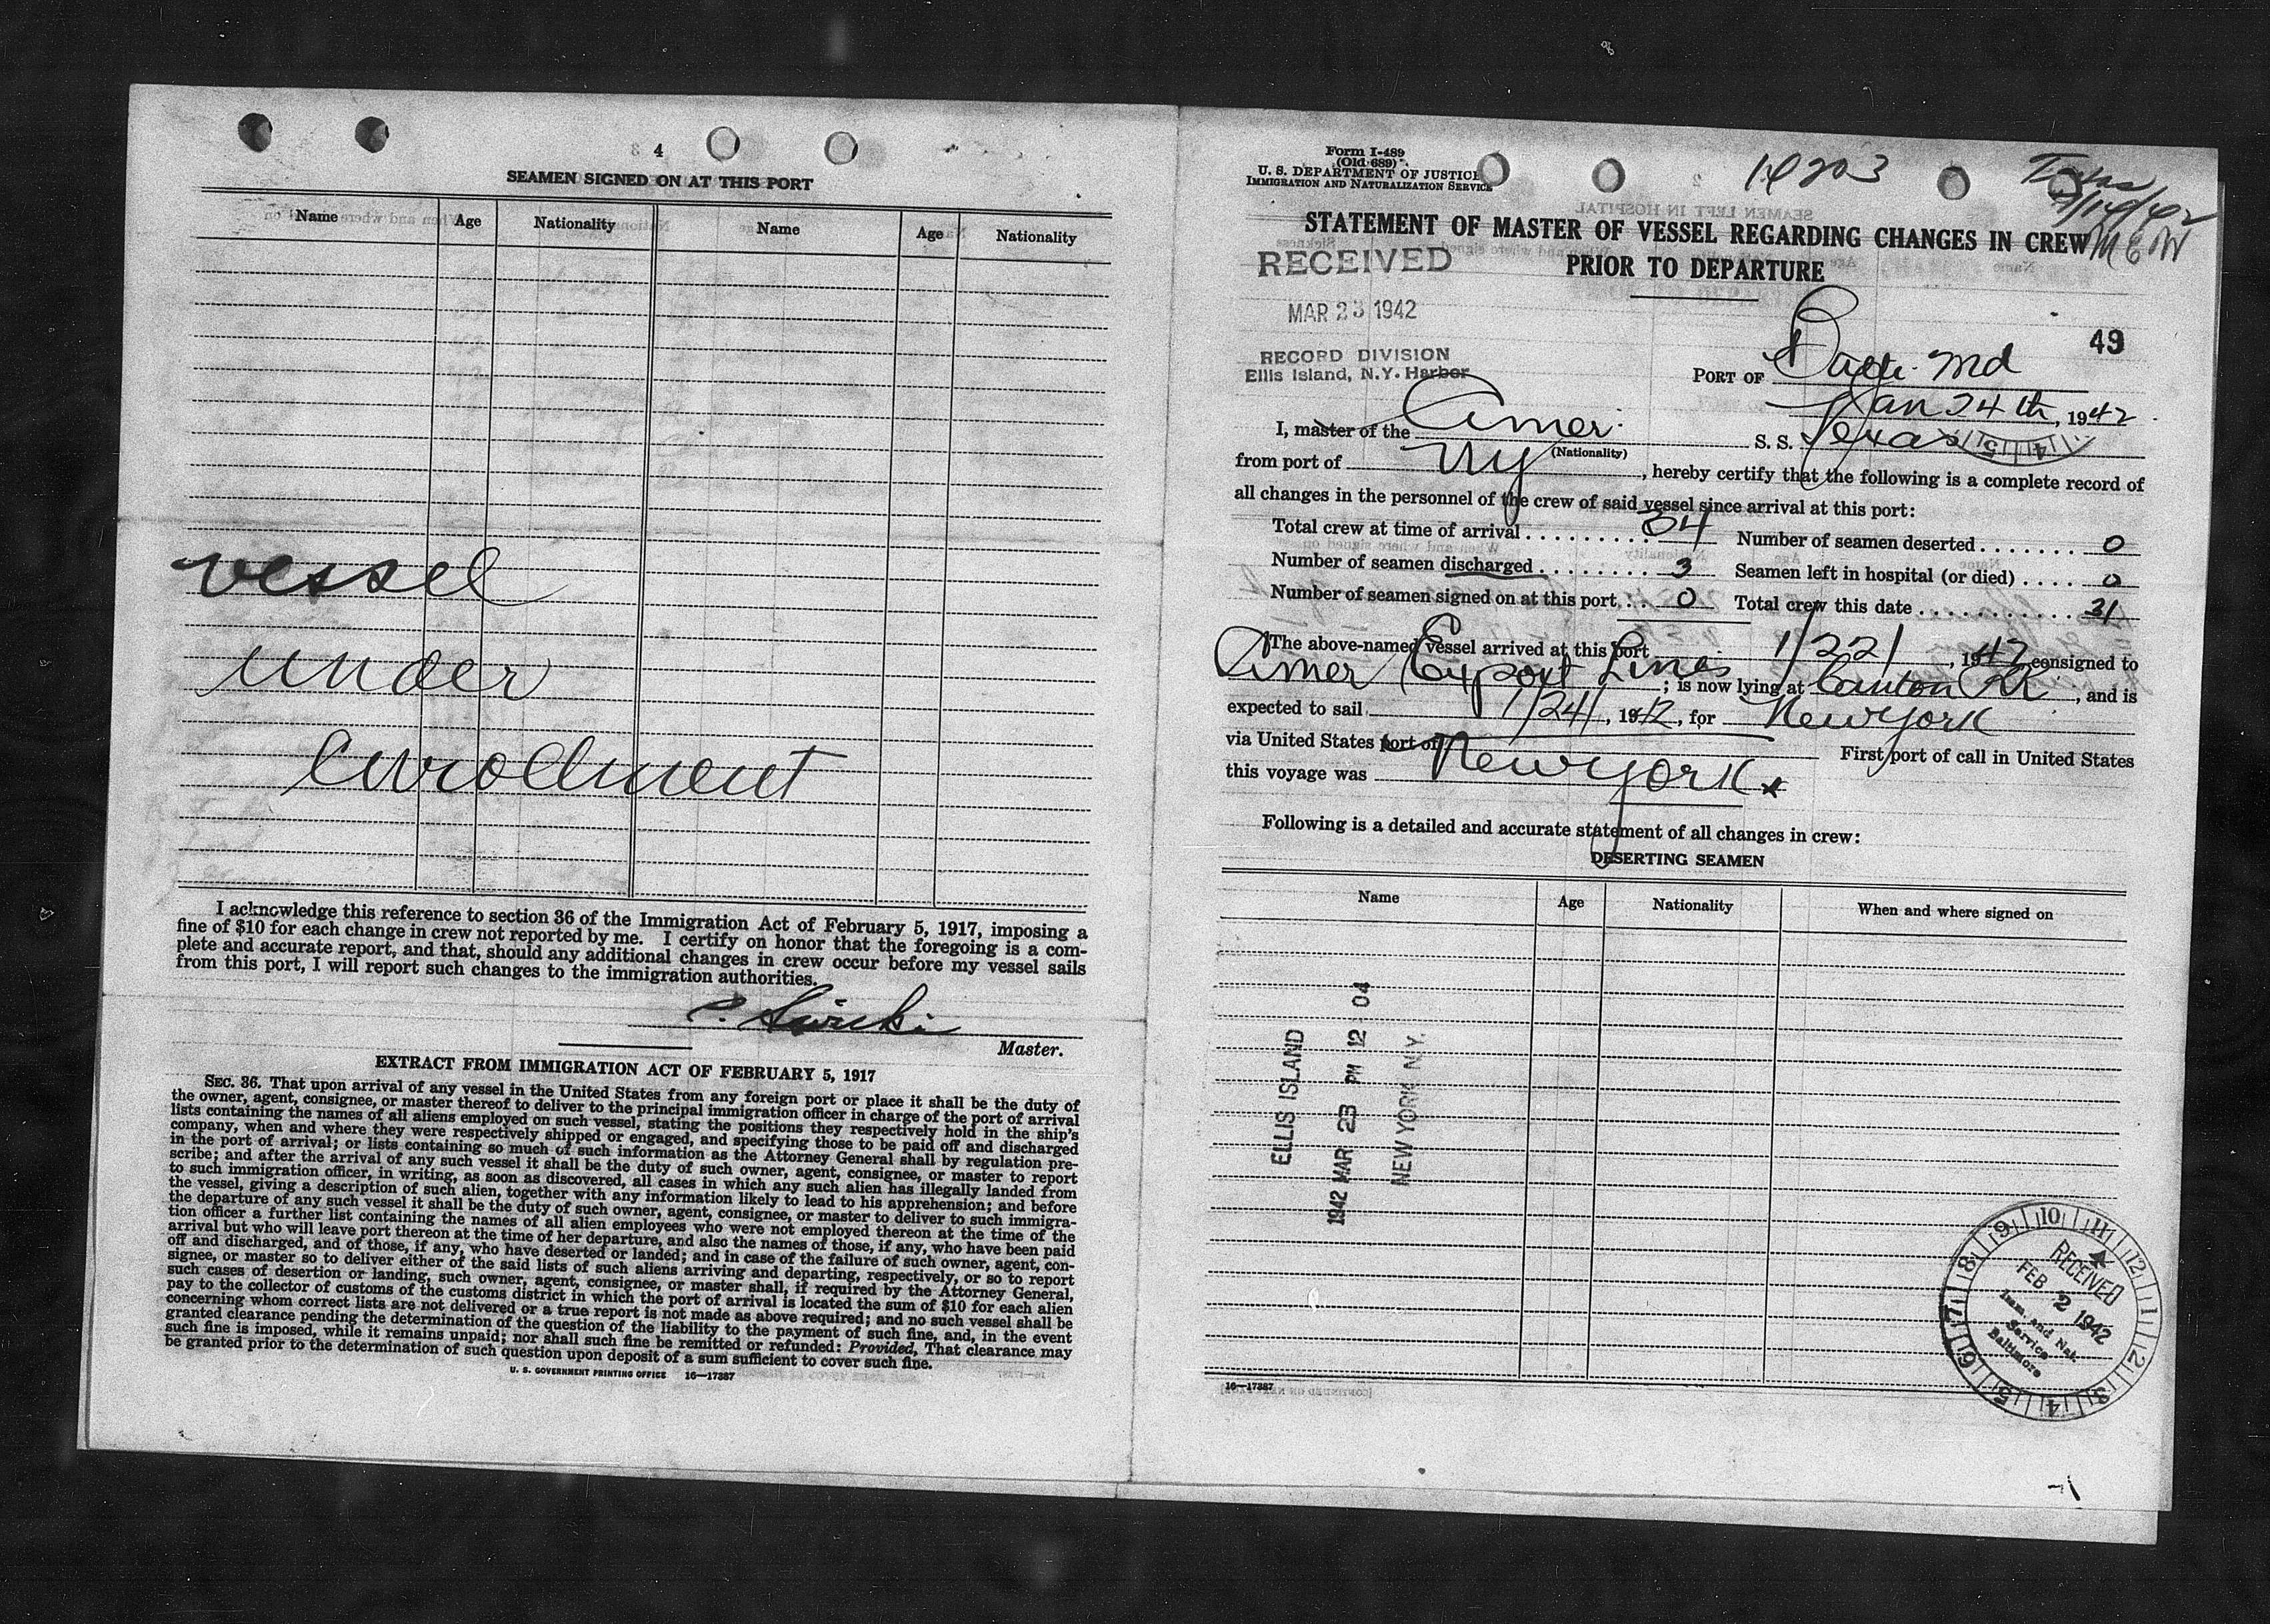 4
SEAMEN SIGNED ON AT THIS PORT
Name Age Nationality Name Age Nationality
vessel
under
enrollment
I acknowledge this reference to section 36 of the Immigration Act of February 5, 1917, imposing a
fine of $10 for each change in crew not reported by me. I certify on honor that the foregoing is a com-
plete and accurate report, and that, should any additional changes in crew occur before my vessel sails
from this port, I will report such changes to the immigration authorities.
Master.
EXTRACT FROM IMMIGRATION ACT OF FEBRUARY 5, 1917
SEC. 36. That upon arrival of any vessel in the United States from any foreign port or place it shall be the duty of
the owner, agent, consignee, or master thereof to deliver to the principal immigration officer in charge of the port of arrival
lists containing the names of all aliens employed on such vessel, stating the positions they respectively hold in the ship's
company, when and where they were respectively shipped or engaged, and specifying those to be paid off and discharged
in the port of arrival; or lists containing so much of such information as the Attorney General shall by regulation pre-
scribe; and after the arrival of any such vessel it shall be the duty of such owner, agent, consignee, or master to report
to such immigration officer, in writing, as soon as discovered, all cases in which any such alien has illegally landed from
the vessel, giving a description of such alien, together with any information likely to lead to his apprehension; and before
the departure of any such vessel it shall be the duty of such owner, agent, consignee, or master to deliver to such immigra-
tion officer a further list containing the names of all alien employees who were not employed thereon at the time of the
arrival but who will leave port thereon at the time of her departure, and also the names of those, if any, who have been paid
off and discharged, and of those, if any, who have deserted or landed; and in case of the failure of such owner, agent, con-
signee, or master so to deliver either of the said lists of such aliens arriving and departing, respectively, or so to report
such cases of desertion or landing, such owner, agent, consignee, or master shall, if required by the Attorney General,
pay to the collector of customs of the customs district in which the port of arrival is located the sum of $10 for each alien
concerning whom correct lists are not delivered or a true report is not made as above required; and no such vessel shall be
granted clearance pending the determination of the question of the liability to the payment of such fine, and, in the event
such fine is imposed, while it remains unpaid; nor shall such fine be remitted or refunded: Provided, That clearance may
be granted prior to the determination of such question upon deposit of a sum sufficient to cover such fine.
U. S. GOVERNMENT PRINTING OFFICE 16—17387
Form I-489
(Old 689)
U. S. DEPARTMENT OF JUSTICE
IMMIGRATION AND NATURALIZATION SERVICE
14203
Texas
MEW
STATEMENT OF MASTER OF VESSEL REGARDING CHANGES IN CREW
PRIOR TO DEPARTURE
RECEIVED
MAR 23 1942
RECORD DIVISION
Ellis Island, N.Y. Harbor
49
PORT OF Balto. Md
Jan 24th, 1942
I, master of the Amer. S. S. Texas
(Nationality)
from port of NY, hereby certify that the following is a complete record of
all changes in the personnel of the crew of said vessel since arrival at this port:
Total crew at time of arrival ......... 34 Number of seamen deserted ....... 0
Number of seamen discharged ........ 3 Seamen left in hospital (or died) .... 0
Number of seamen signed on at this port ... 0 Total crew this date ........... 31
The above-named vessel arrived at this port 1/22/, 1942 consigned to
Amer Export Lines; is now lying at Canton RR, and is
expected to sail 1/24/, 1942, for New York
via United States port of First port of call in United States
this voyage was New York
Following is a detailed and accurate statement of all changes in crew:
DESERTING SEAMEN
Name Age Nationality When and where signed on
ELLIS ISLAND
1942 MAR 23 PM 12 04
NEW YORK N.Y.
RECEIVED
FEB 2 1942
Imm. and Nat.
Service
Baltimore
16—17387